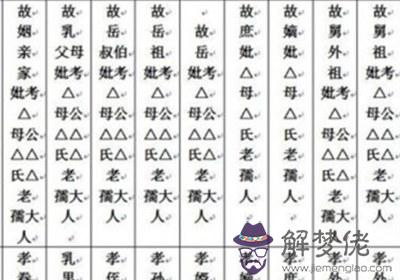 故舅祖妣考△母公△△氏△老孺大人
故舅外祖妣考△母公△△氏△老孺大人
故嫡妣△母△氏老孺人
故庶妣△母△氏老孺人
故岳妣考△母公△△氏△老孺大人
故岳祖妣考△母公△△氏△老孺大人
故岳叔伯妣考△母公△△氏△老孺大人
故乳父母妣考△母公△△氏△老孺大人
故姻亲家妣考△母公△△氏△老孺大人
孝外
孝外
孝
孝
孝
孝孙
孝侄
乳男
孝眷
解梦佬
www.jiemenglao.com